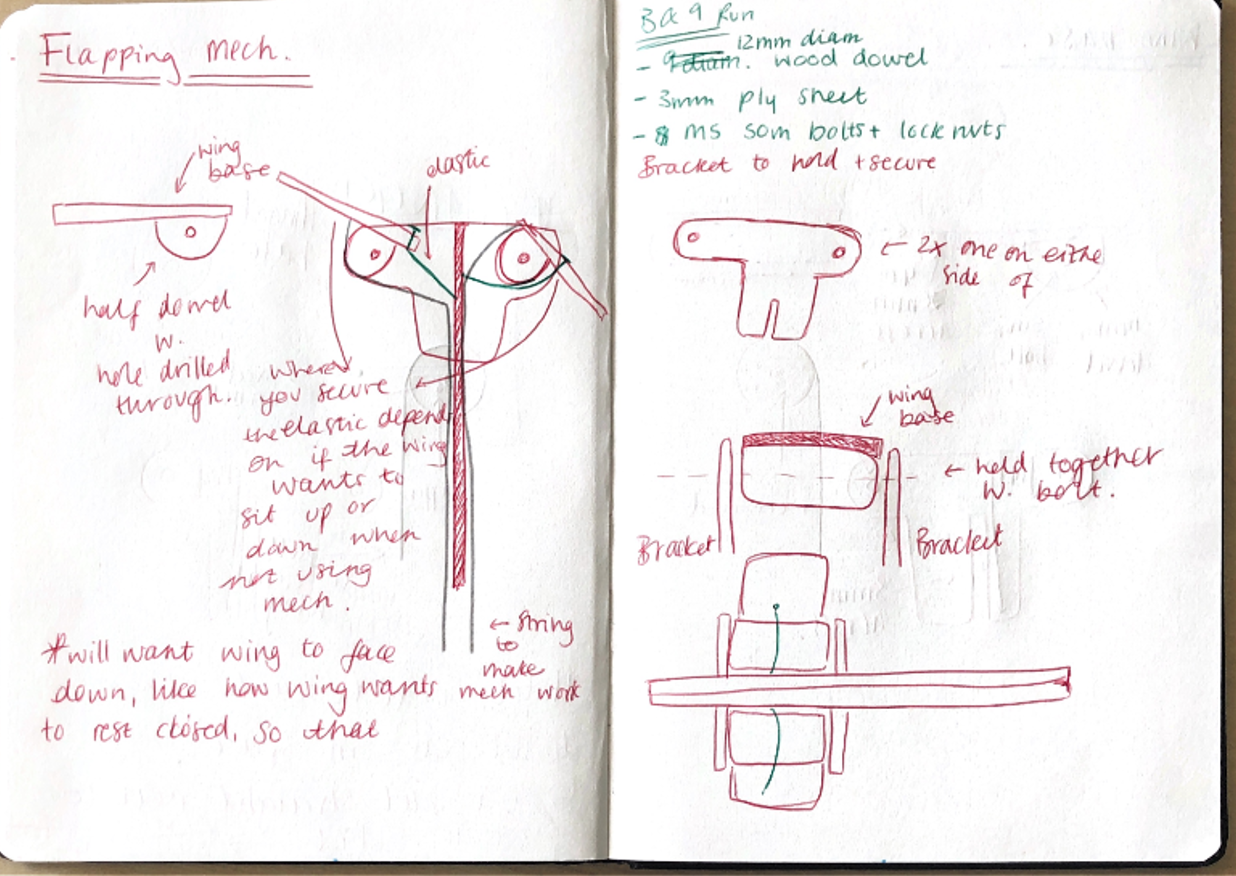 Flapping mech.
wing
base
elastic
half dowel
w.
hole drilled
through.
where
you secure
the elastic depends
on if the wing
wants to
sit up or
down when
not using
mech.
← string
to
make
mech work
*will want wing to face
down, like how wing wants
to rest closed, so that
B&Q Run
12mm diam
- wood dowel
- 3mm ply sheet
- 8 M5 50m bolts + lock nuts
Bracket to hold + secure
← 2x one on eithe
side of
wing
base
← held together
w. bolt.
Bracket
Bracket